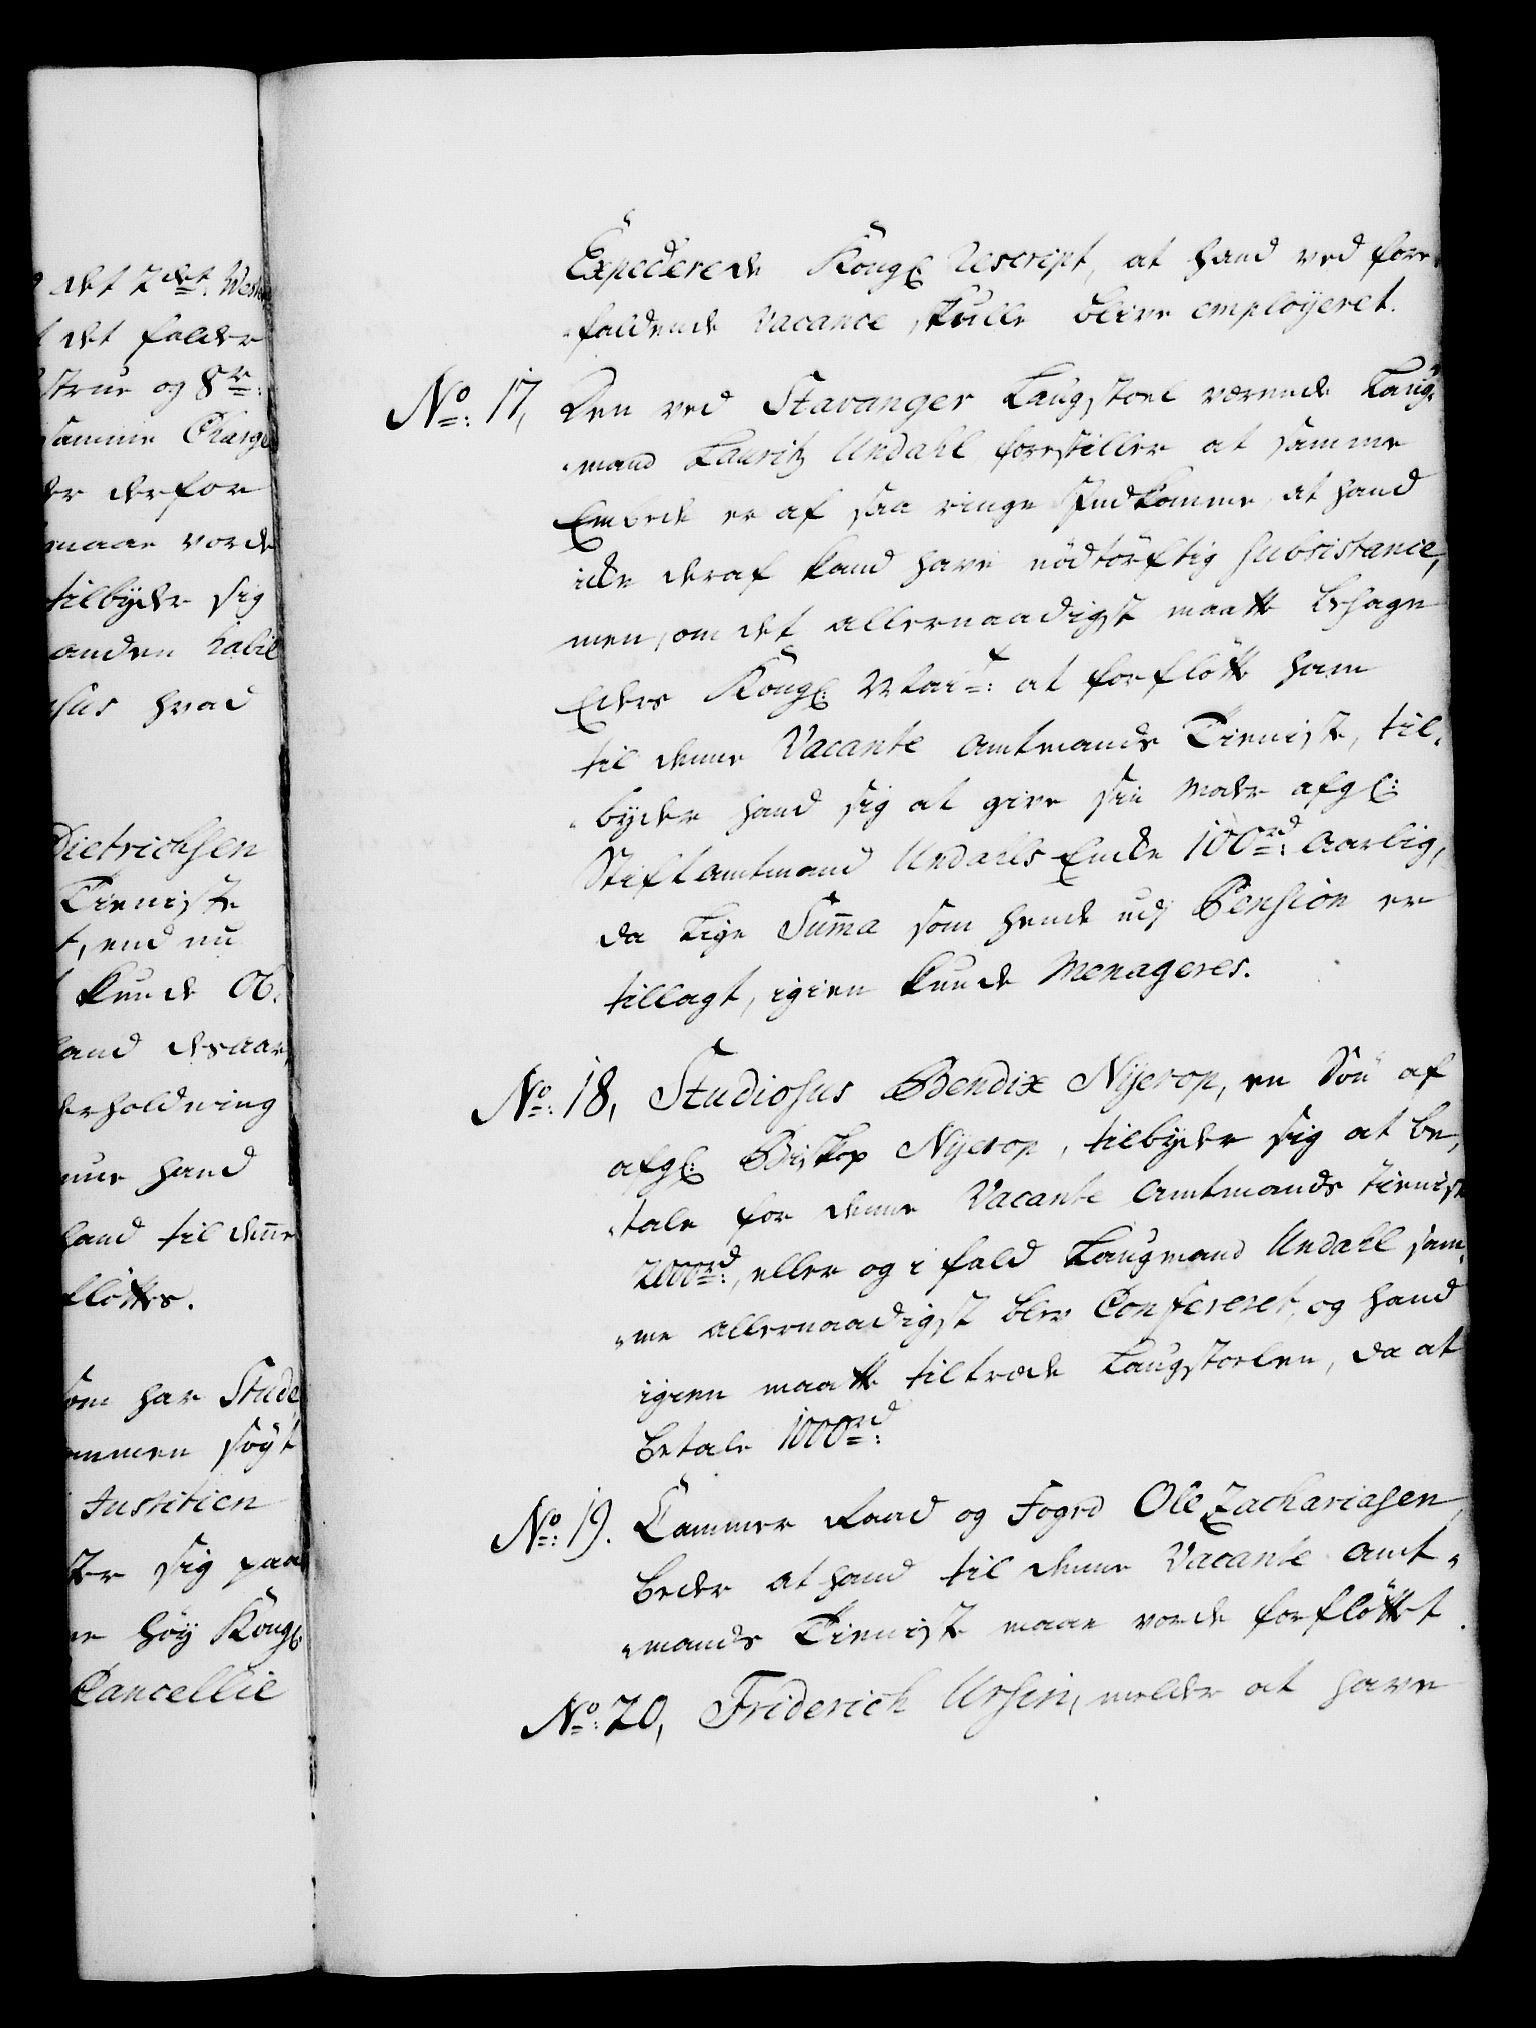 det 2det West
det falder
strue og 8te:
samme Charge
der derfor
maae vorde
tilbyder sig
anden habil
hvad
Dietrichsen
Tieniste
t, end nu
kunde Ob,
land desaar,
erholdning
hand
land til deñe
fløttes.
som har Stude,
ommen søgt
Justitien
ter sig paa
høy Kongl:
Cancellie
Expederede Kongl: Rescript, at hand ved fore,
faldende Vacance skulle blive employeret.
No: 17, Den ved Stavanger Laugstoel værende Laug,
mand Lauritz Undahl forestiller at samme
Embede er af saa ringe Indkomme, at hand
icke deraf kand have nødtørftig Subsistance,
men, om det allernaadigst maatte behage
Eders Kongl: Mait: at forfløtte ham
til denne Vacante Amtmands Tieniste, til,
byder hand sig at give sin Moder afgl:
Stiftamtmand Undahls Encke 100rd: Aarlig,
da lige Suma som hende udj Pension er
tillagt, igien kunde Menageres.
No: 18, Studiosus Bendix Nyerop, en Søn af
afgl: Biskop Nyerop, tilbyder sig at be,
tale for denne Vacante Amtmands tienist
2000rd:, eller og i fald Laugmand Undahl sam,
me allernaadigst blev Confereret, og hand
igien maatte tiltræde Laugstoelen, da at
betale 1000rd:
No: 19. Cammer Raad og Foged Ole Zachariasen,
beder at hand til denne Vacante Amt,
mands Tieniste maae vorde forfløttet.
No: 20, Friderich Ursin, melder at have